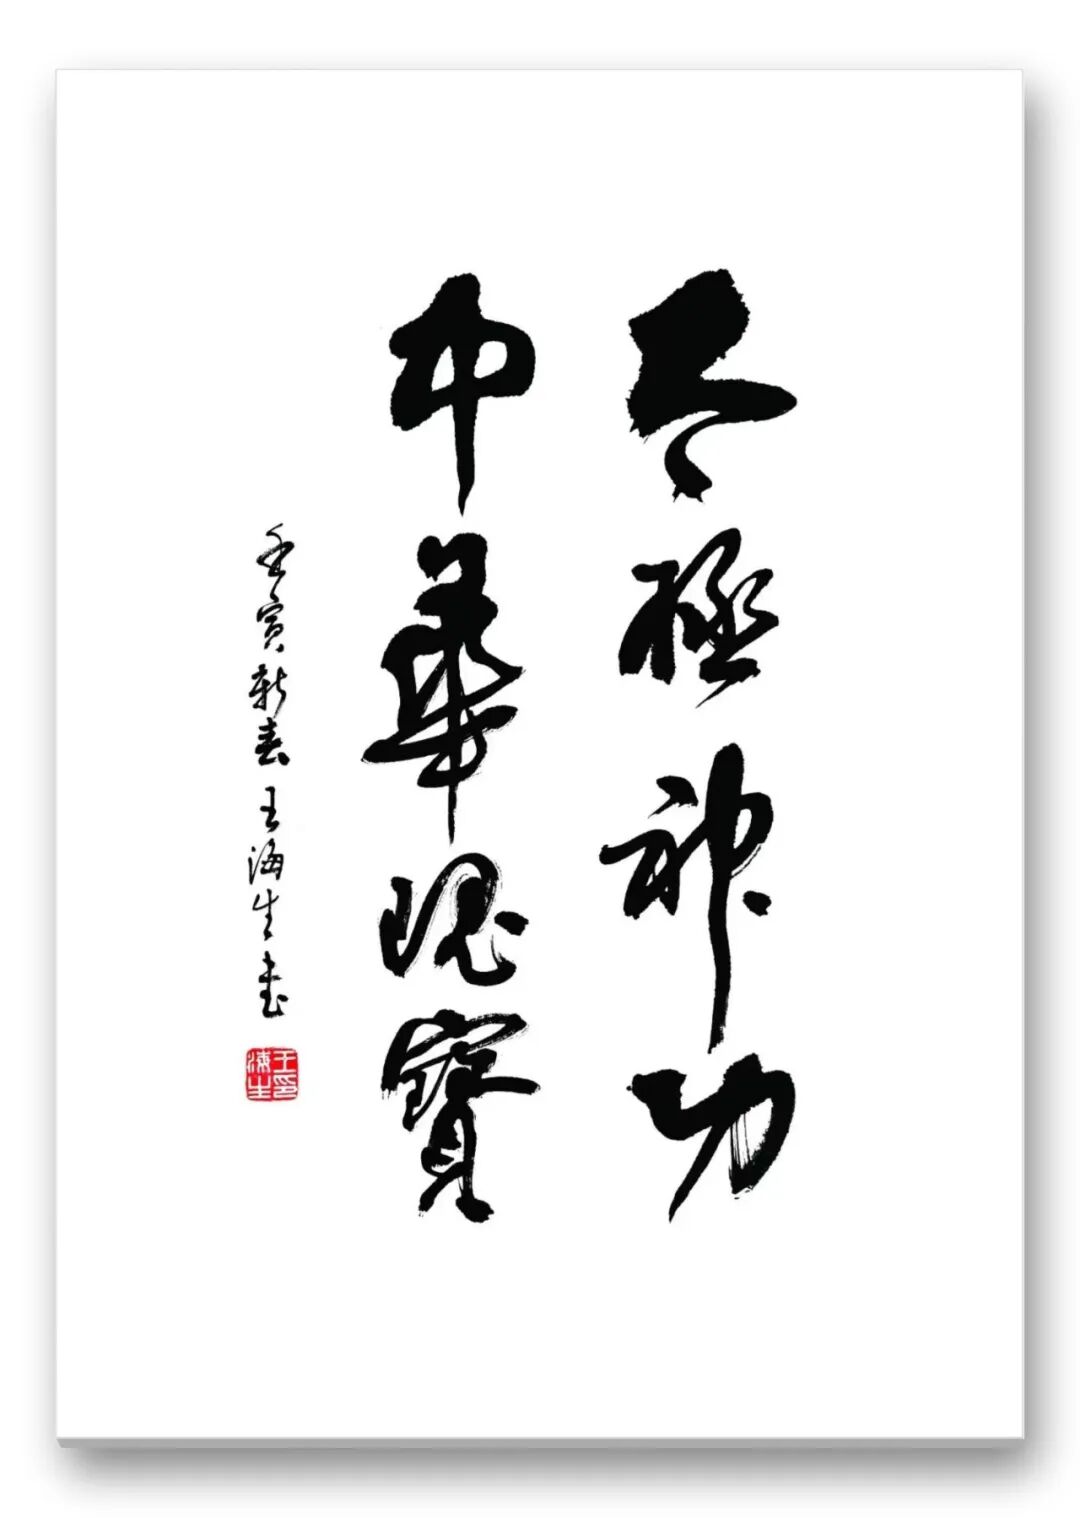 太極神功
中華瑰寶
壬寅新春王海生書
王海生印